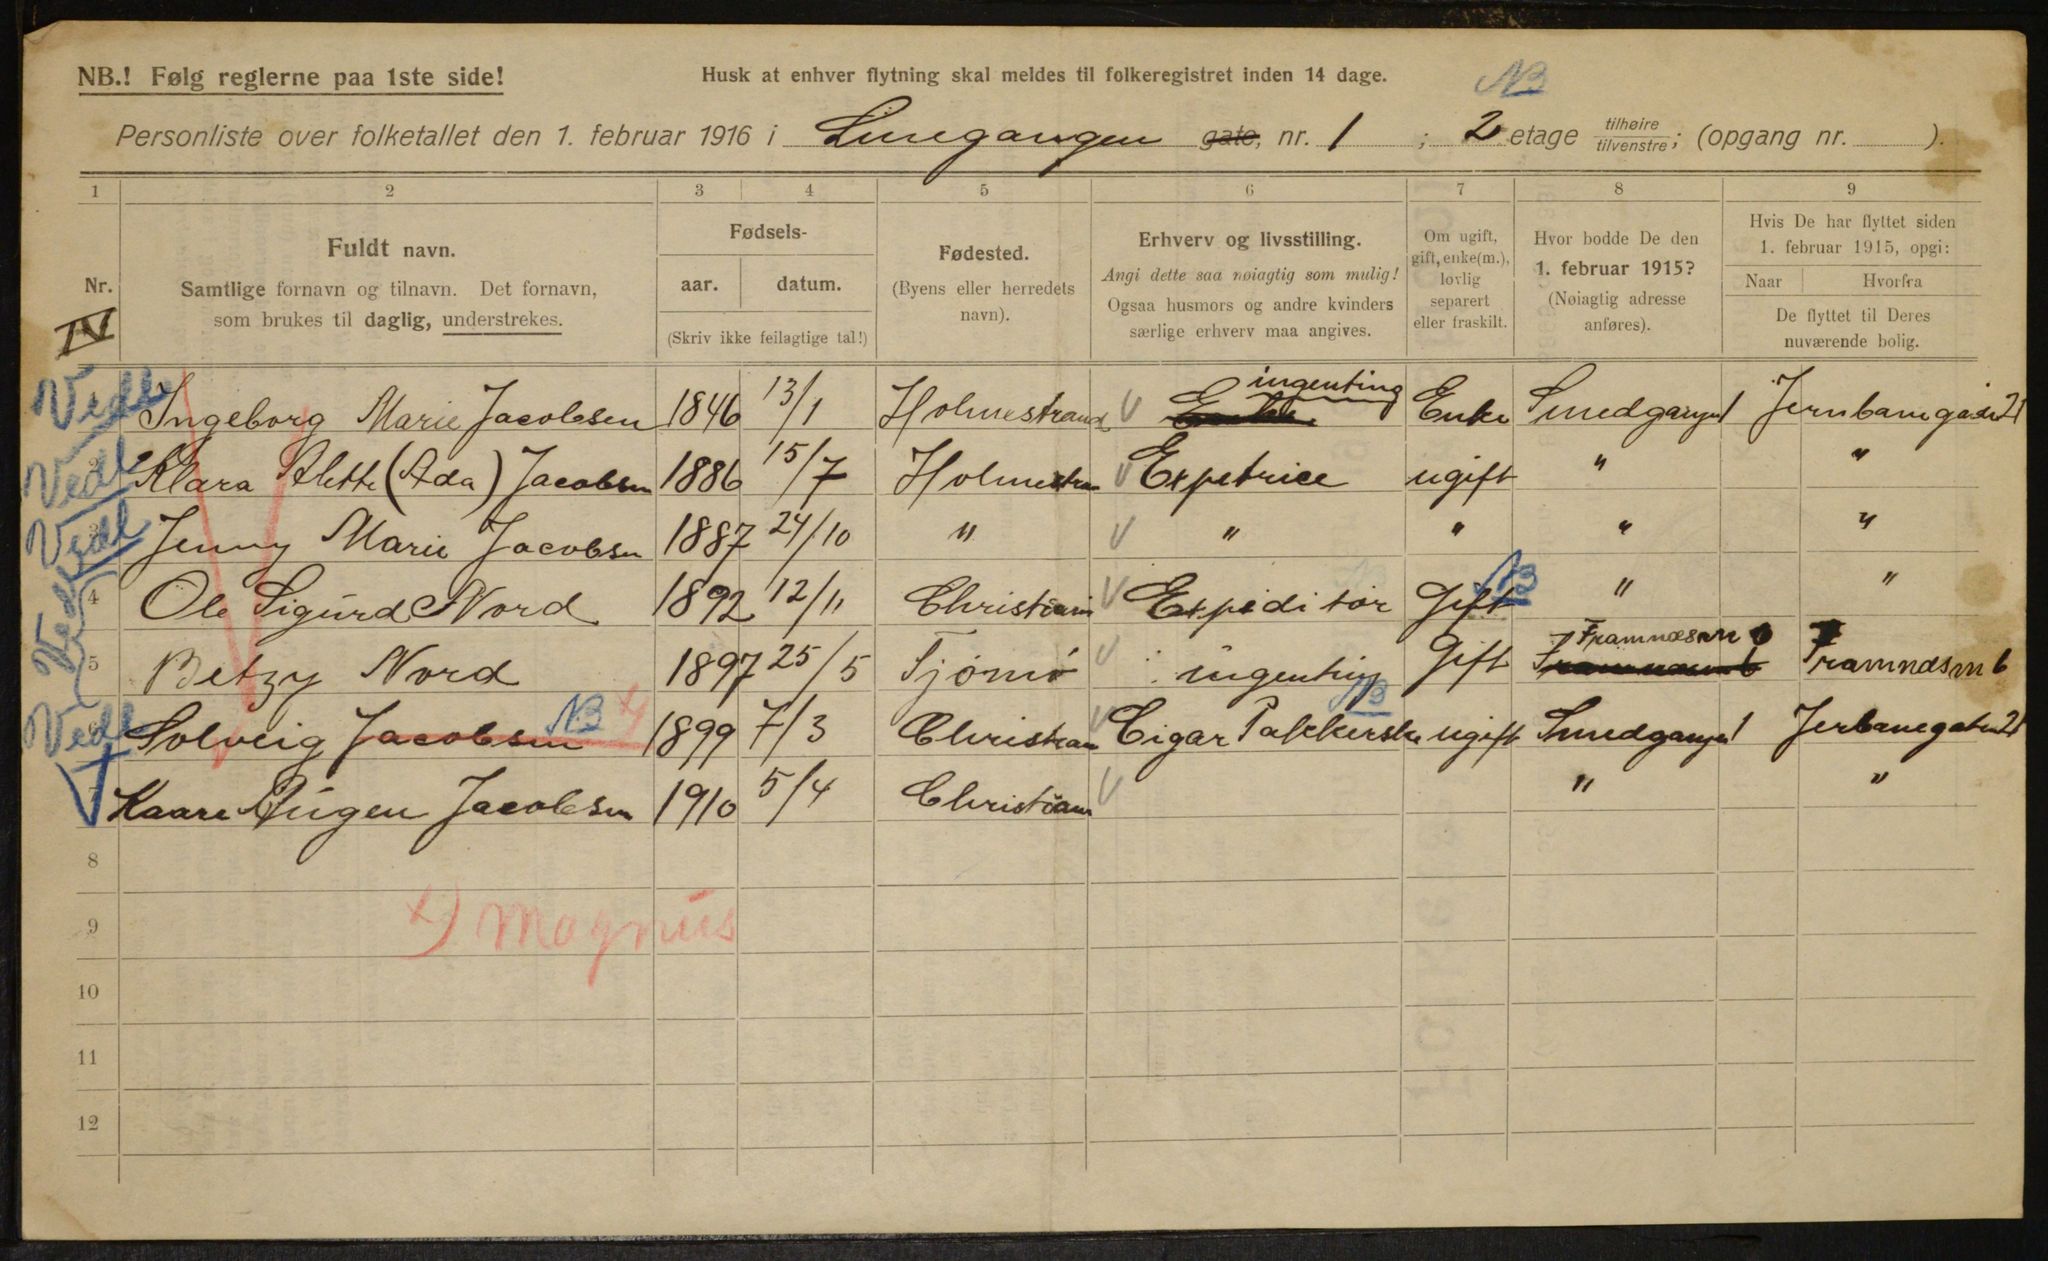 NB.! Følg reglerne paa 1ste side!
Husk at enhver flytning skal meldes til folkeregistret inden 14 dage.
NB
Personliste over folketallet den 1. februar 1916 i gate, nr. 1 ; 2 etage tilhøire tilvenstre; (opgang nr. ).
1 2 3 4 5 6 7 8 9
Nr.
Fuldt navn.
Samtlige fornavn og tilnavn. Det fornavn,
som brukes til daglig, understrekes.
Fødsels-
aar. datum.
(Skriv ikke feilagtige tal!)
Fødested.
(Byens eller herredets
navn).
Erhverv og livsstilling.
Angi dette saa nøiagtig som mulig!
Ogsaa husmors og andre kvinders
særlige erhverv maa angives.
Om ugift,
gift, enke(m.),
lovlig
separert
eller fraskilt.
Hvor bodde De den
1. februar 1915?
(Nøiagtig adresse
anføres).
Hvis De har flyttet siden
1. februar 1915, opgi:
Naar Hvorfra
De flyttet til Deres
nuværende bolig.
IV
Vedl Ingeborg Marie Jacobsen 1846 13/1 Holmestrand ingenting Enke Smedgangen 1 Jernbanegaden 21
Vedl 2 Klara Alette (Ada) Jacobsen 1886 15/7 Holmestran Expetrice ugift " "
Vedl 3 Jenny Marie Jacobsen 1887 24/10 " " " " "
Vedl 4 Ole Sigurd Nord 1892 12/11 Christiania Expeditor Gift NB " "
5 Betzy Nord 1897 25/5 Tjømø ingenting Gift Framnæsm Framnæsm 6
Vedl 6 Solveig Jacobsen NB x) 1899 7/3 Christiania Cigar Pakkerske NB ugift Smedgangen 1 Jerbanegaten 21
7 Kaare Jacobsen 1910 5/4 Christiania " "
8
9
x) Magnus
10
11
12